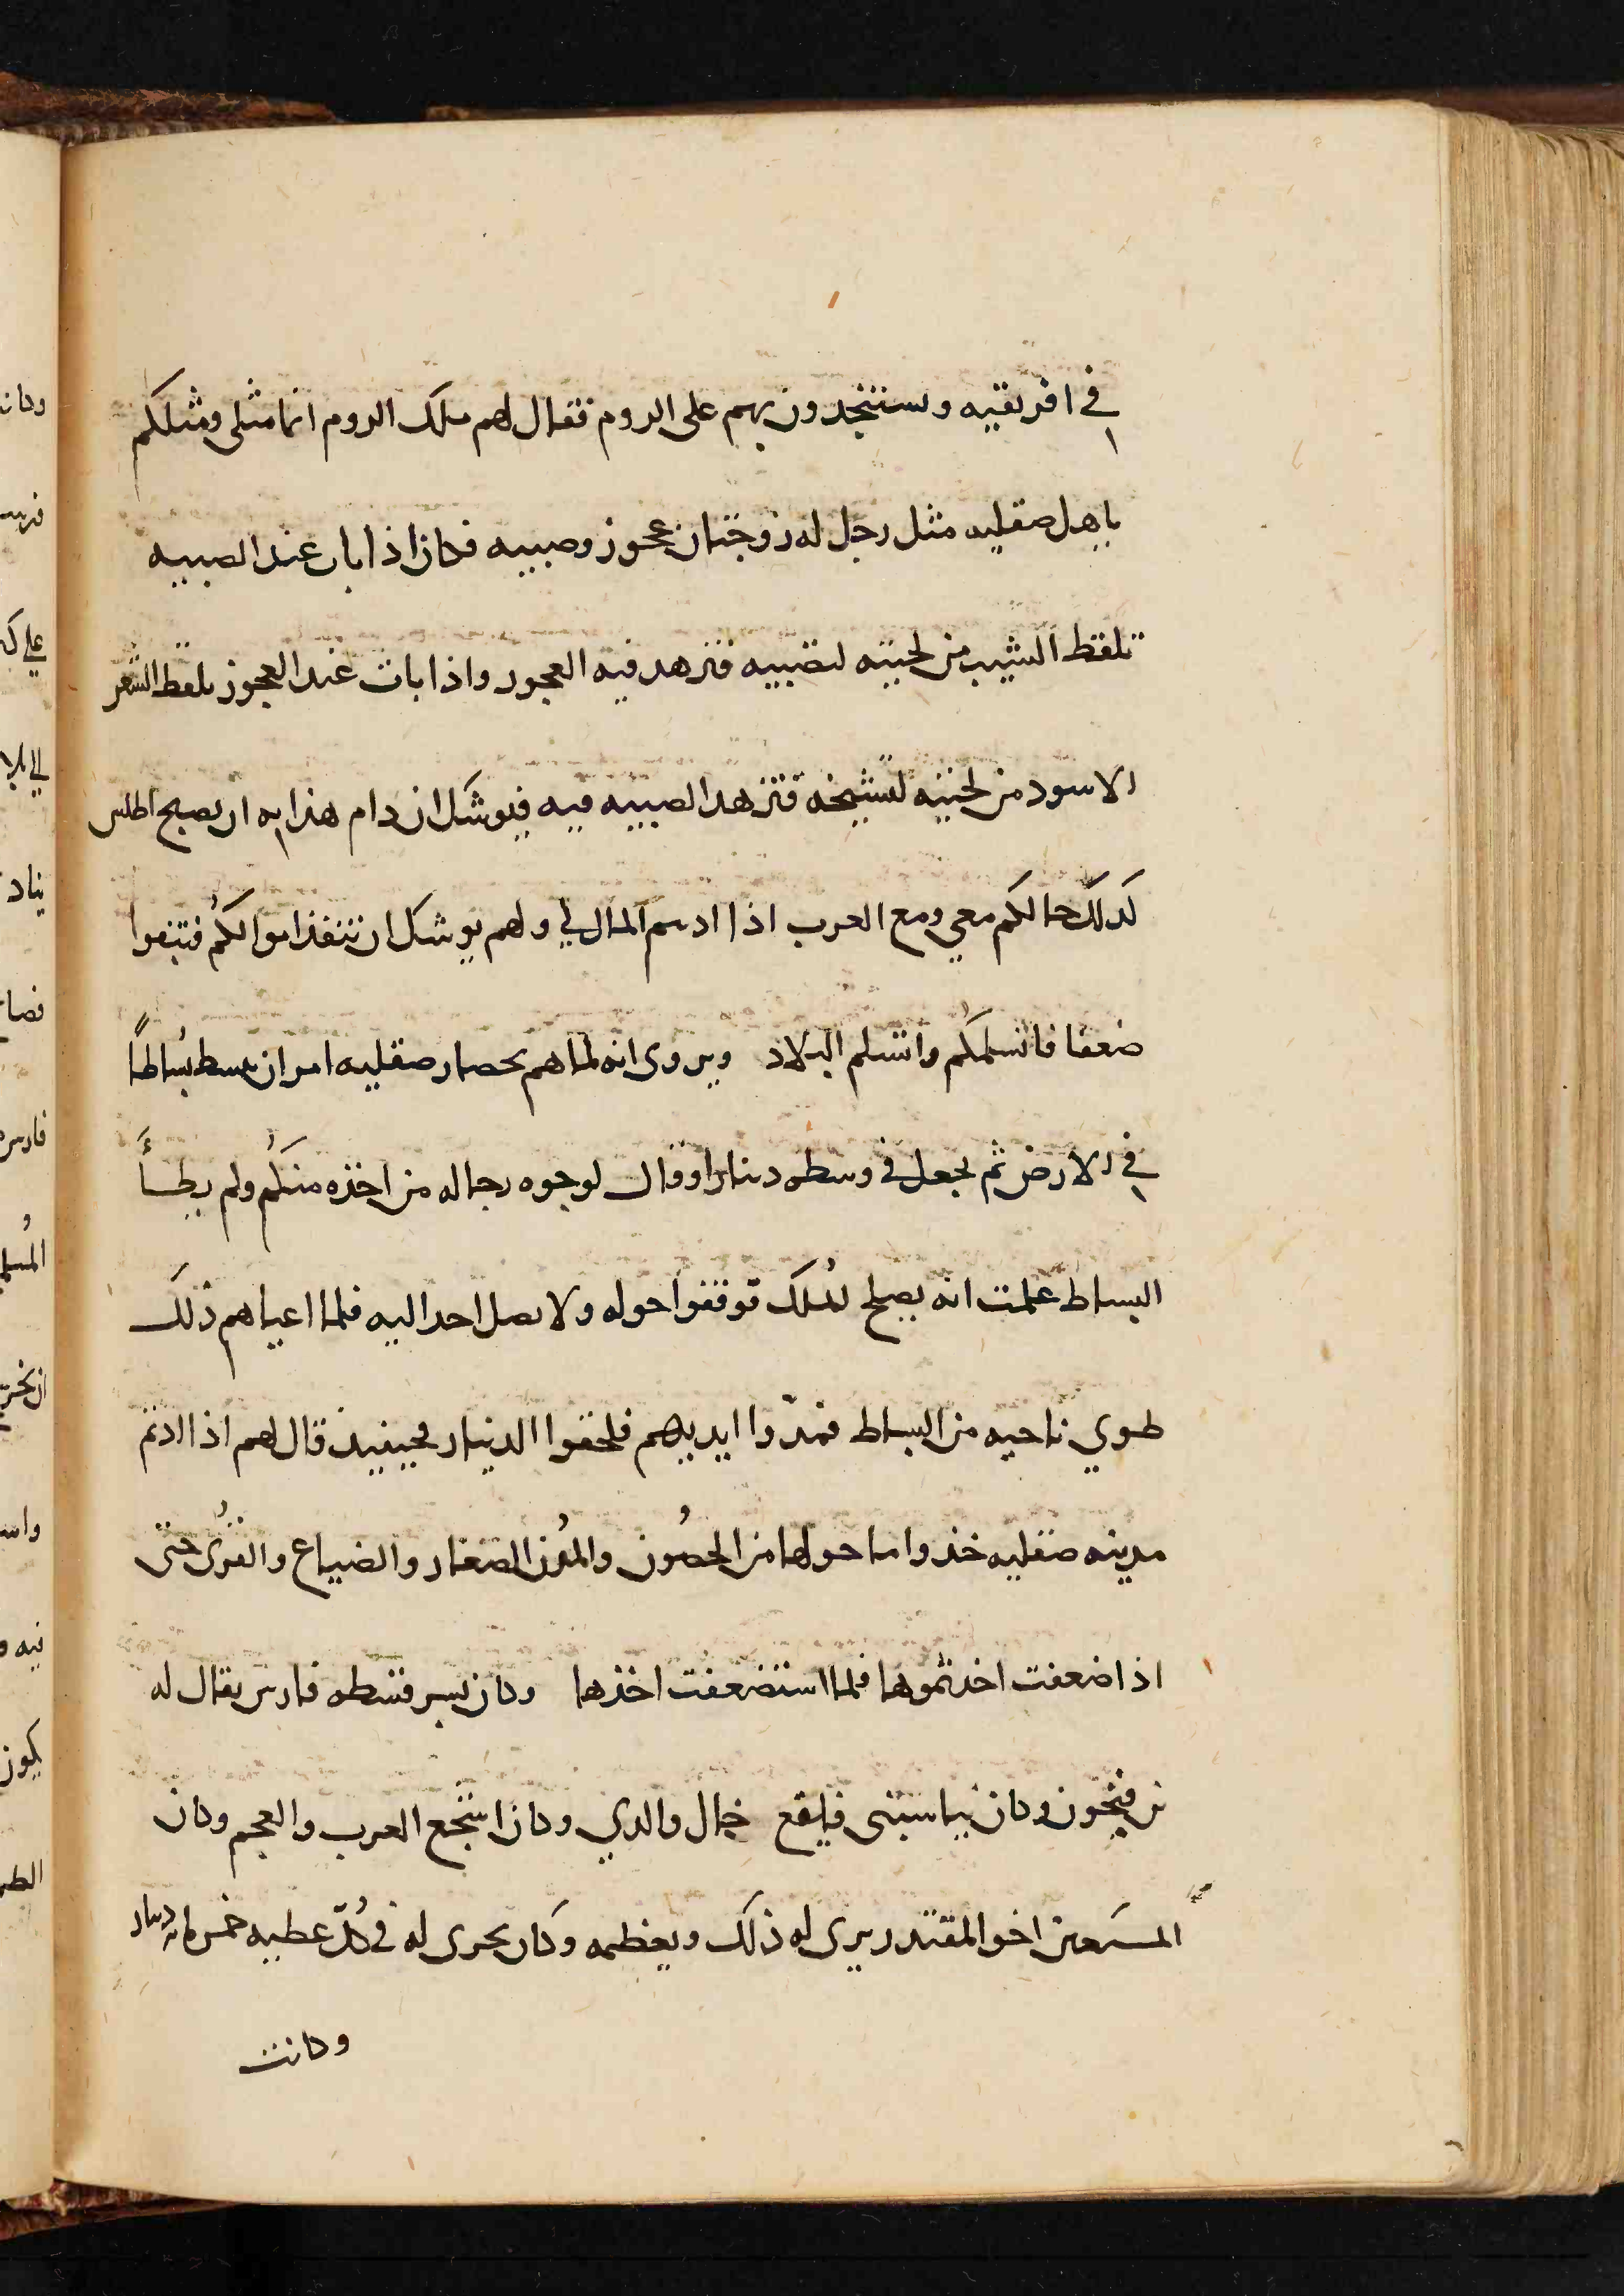 في افريقيه ويستنجدون بهم على الروم فقال لهم ملك الروم انما مثلى ومثلكم
ياهل صقليه مثل رجل له زوجتان عجوز وصبيه فكان اذا بات عند الصبيه
تلقط الشيب من لحيته لتصبيه فتزهد فيه العجوز واذا بات عند العجوز تلقط الشعر
الاسود من لحيته لتشيخه فتزهد الصبيه فيه فيوشك ان دام هذا به ان يصبح اطلس
كذلك حالكم معي ومع العرب اذا اديتم المال لي ولهم يوشك ان تنفذ اموالكم فتبقوا
ضعفا فاتسلمكم واتسلم البلاد ويروى انه لما هم بحصار صقليه امر ان يبسط بساطًا
في الارض ثم يجعل في وسطه دينارا وقال لوجوه رجاله من اخذه منكم ولم يطأ
البساط علمت انه يصلح للملك فوقفوا حوله ولا يصل احد اليه فلما اعياهم ذلك
طوي ناحيه من البساط فمدّوا ايديهم فلحقوا الدينار فحينيذ قال لهم اذا اردتم
مدينه صقليه خذوا ما حولها من الحصُون والمُدن الصغار والضياع والقُرى حتى
اذا ضعفت اخذتموها فلما استضعفت اخذها وكان بسرقسطه فارس يقال له
بن فتحون وكان يناسبنى فايقع خال والدي وكان اشجع العرب والعجم وكان
المستعين اخو المقتدر يرى له ذلك ويعظمه وكان يجرى له في كُلّ عطيه خمس مايه دينار
وكانت